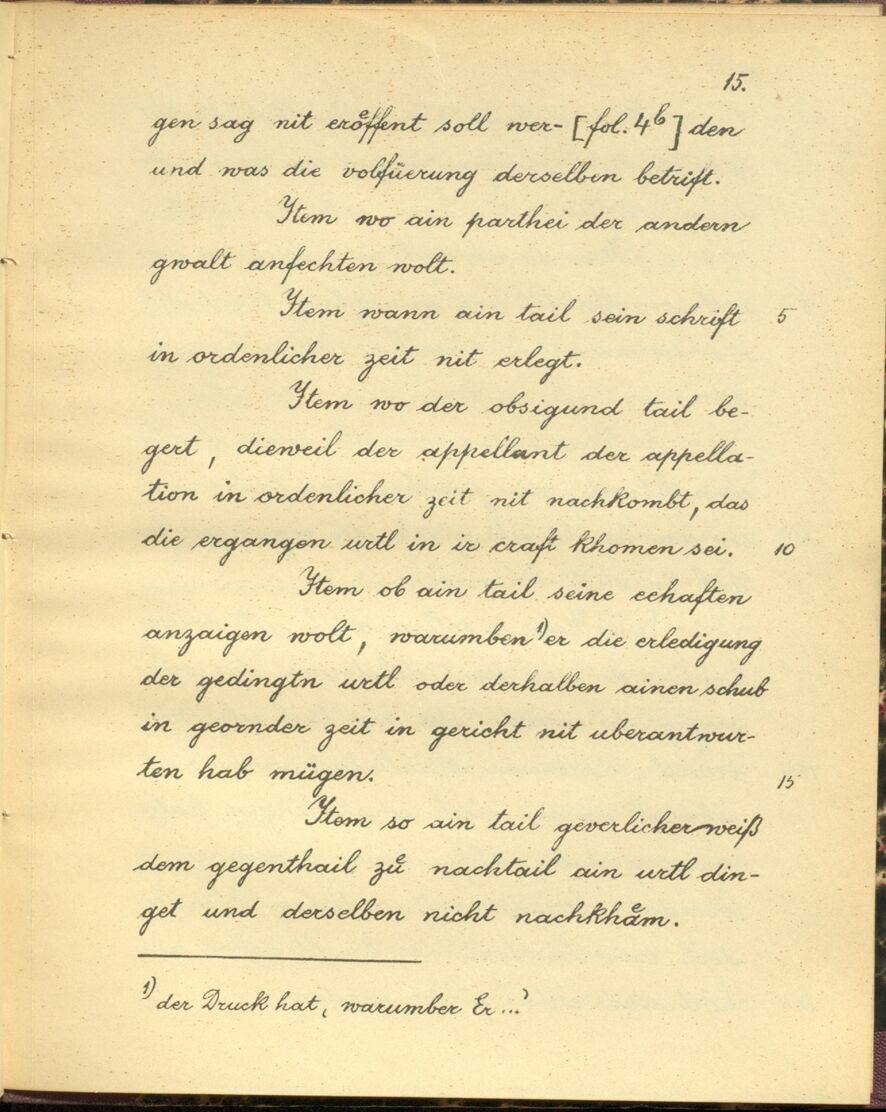 15.
gen sag nit eroͤffent soll wer- [fol. 4b] den
und was die volfüerung derselben betrift.
Item wo ain parthei der andern
gwalt anfechten wolt.
Item wann ain tail sein schrift 5
in ordenlicher zeit nit erlegt.
Item wo der obsigund tail be-
gert, dieweil der appellant der appella-
tion in ordenlicher zeit nit nachkombt, das
die ergangen urtl in ir craft khomen sei. 10
Item ob ain tail seine eehaften
anzaigen wolt, warumben 1) er die erledigung
der gedingtn urtl oder derhalben ainen schub
in geornder zeit in gericht nit uberantwur-
ten hab mügen. 15
Item so ain tail geverlicher weiß
dem gegenthail zuͤ nachtail ain urtl din-
get und derselben nicht nachkhaͤm.
1) der Druck hat, warumber Er ...'